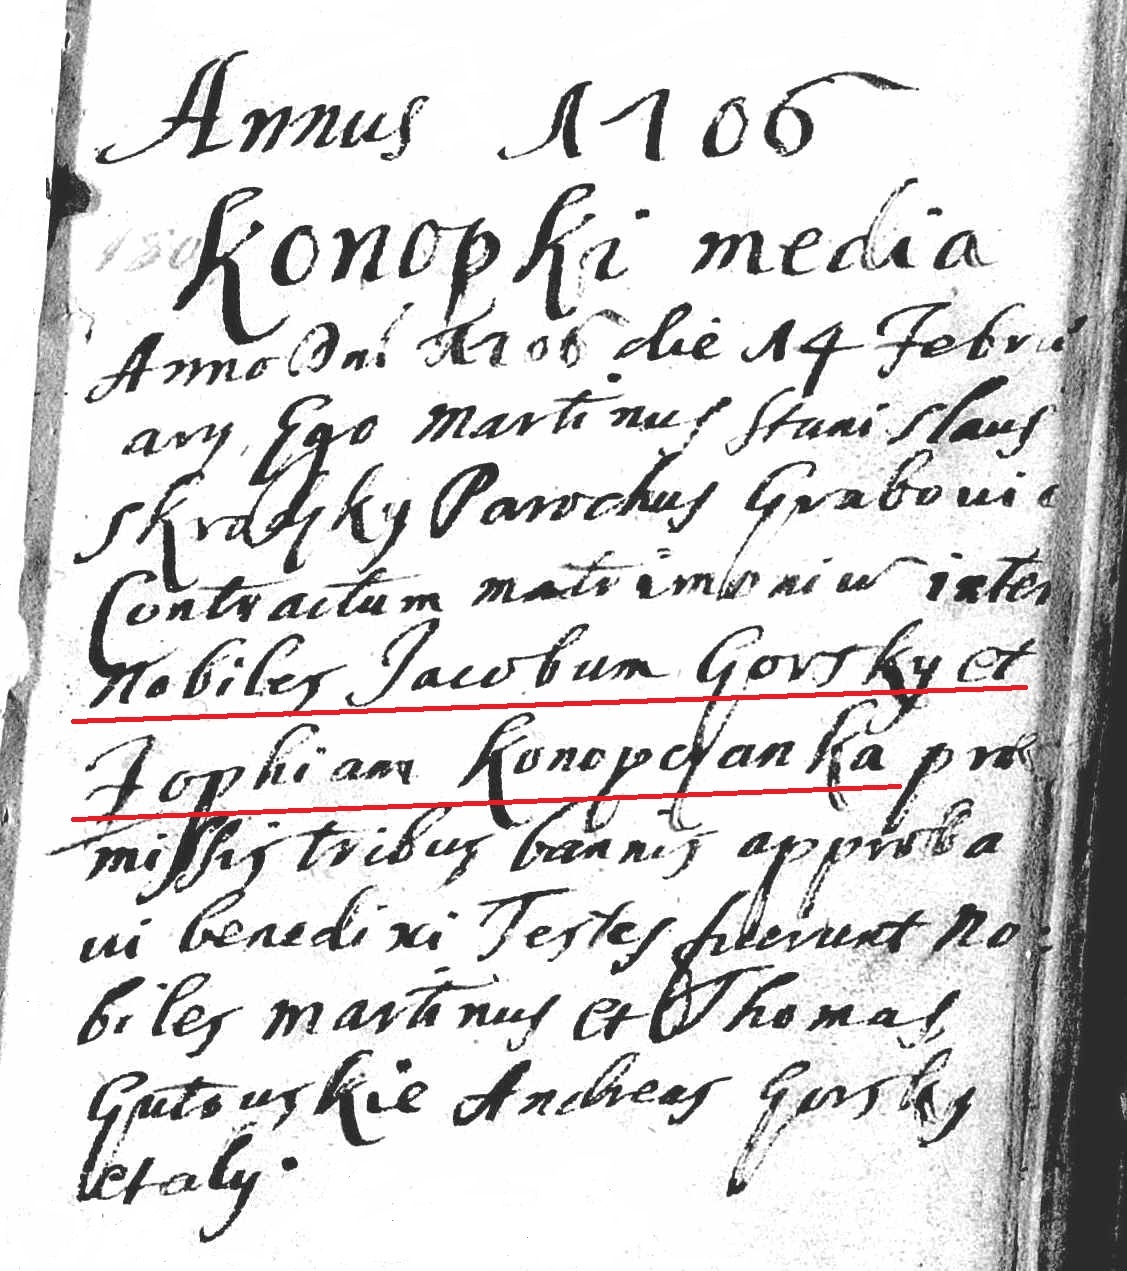 Annus 1706
Konopki media
Anno Dni 1706 die 14 Febru
ary Ego Martinus Stanislaus
Skrodsky Parochus Grabovie
Contractum matrimoniu inter
Nobiles Jacobum Gorsky et
Zophiam Konopczanka præ
missis tribus bannis approba
ui benedixi Testes fuerunt No:
biles Martinus et Thomas
Gutouskie Andreas Gorsky
et aly.